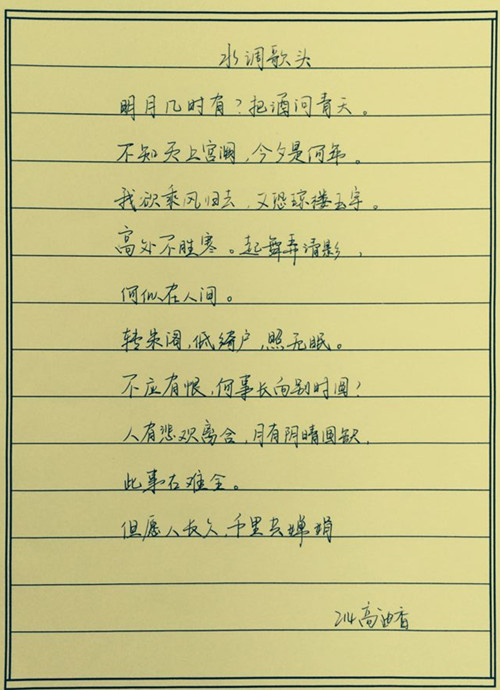 水调歌头
明月几时有？把酒问青天。
不知天上宫阙，今夕是何年。
我欲乘风归去，又恐琼楼玉宇。
高处不胜寒。起舞弄清影，
何似在人间。
转朱阁，低绮户，照无眠。
不应有恨，何事长向别时圆？
人有悲欢离合，月有阴晴圆缺，
此事古难全。
但愿人长久，千里共婵娟
214高油香